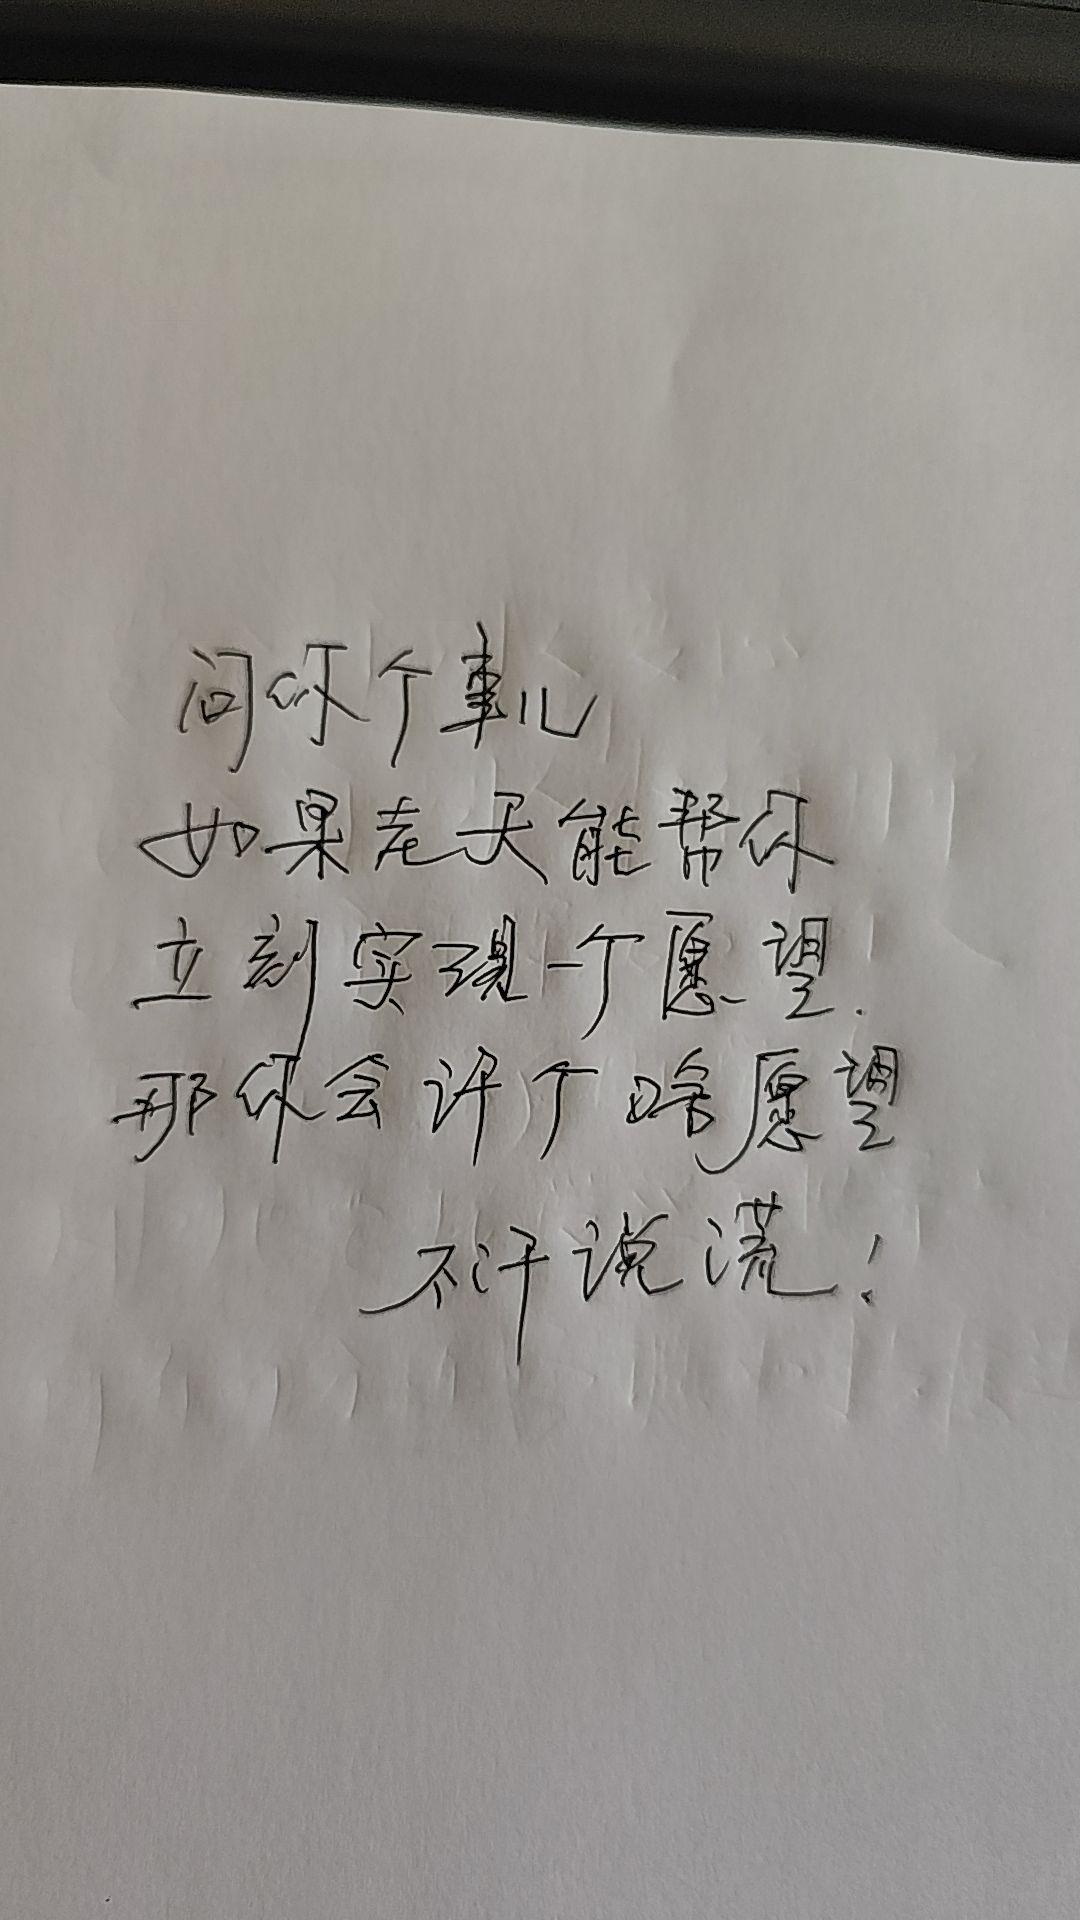 问你个事儿
如果老天能帮你
立刻实现一个愿望.
那你会许个啥愿望
不许说谎!